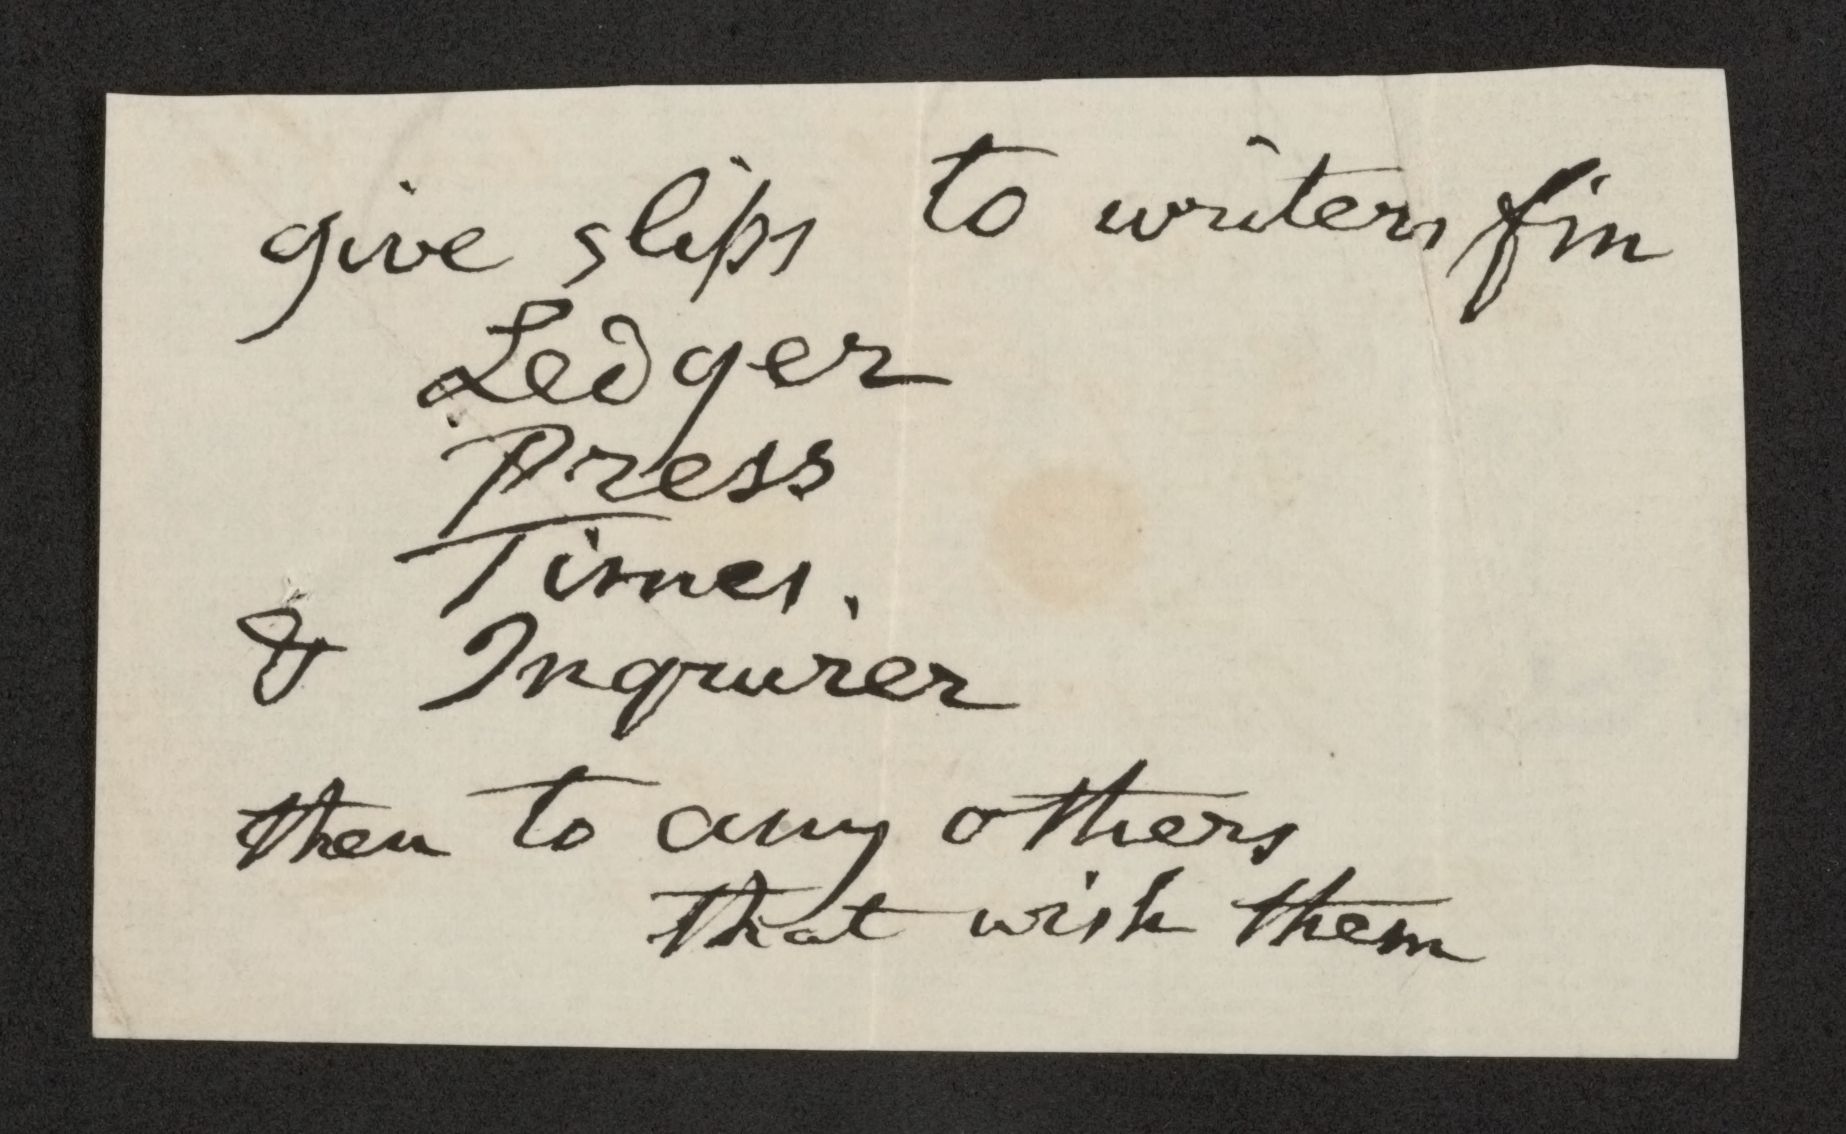 give slips to writers fm
Ledger
Press
Times.
& Inquirer
then to any others
that wish them